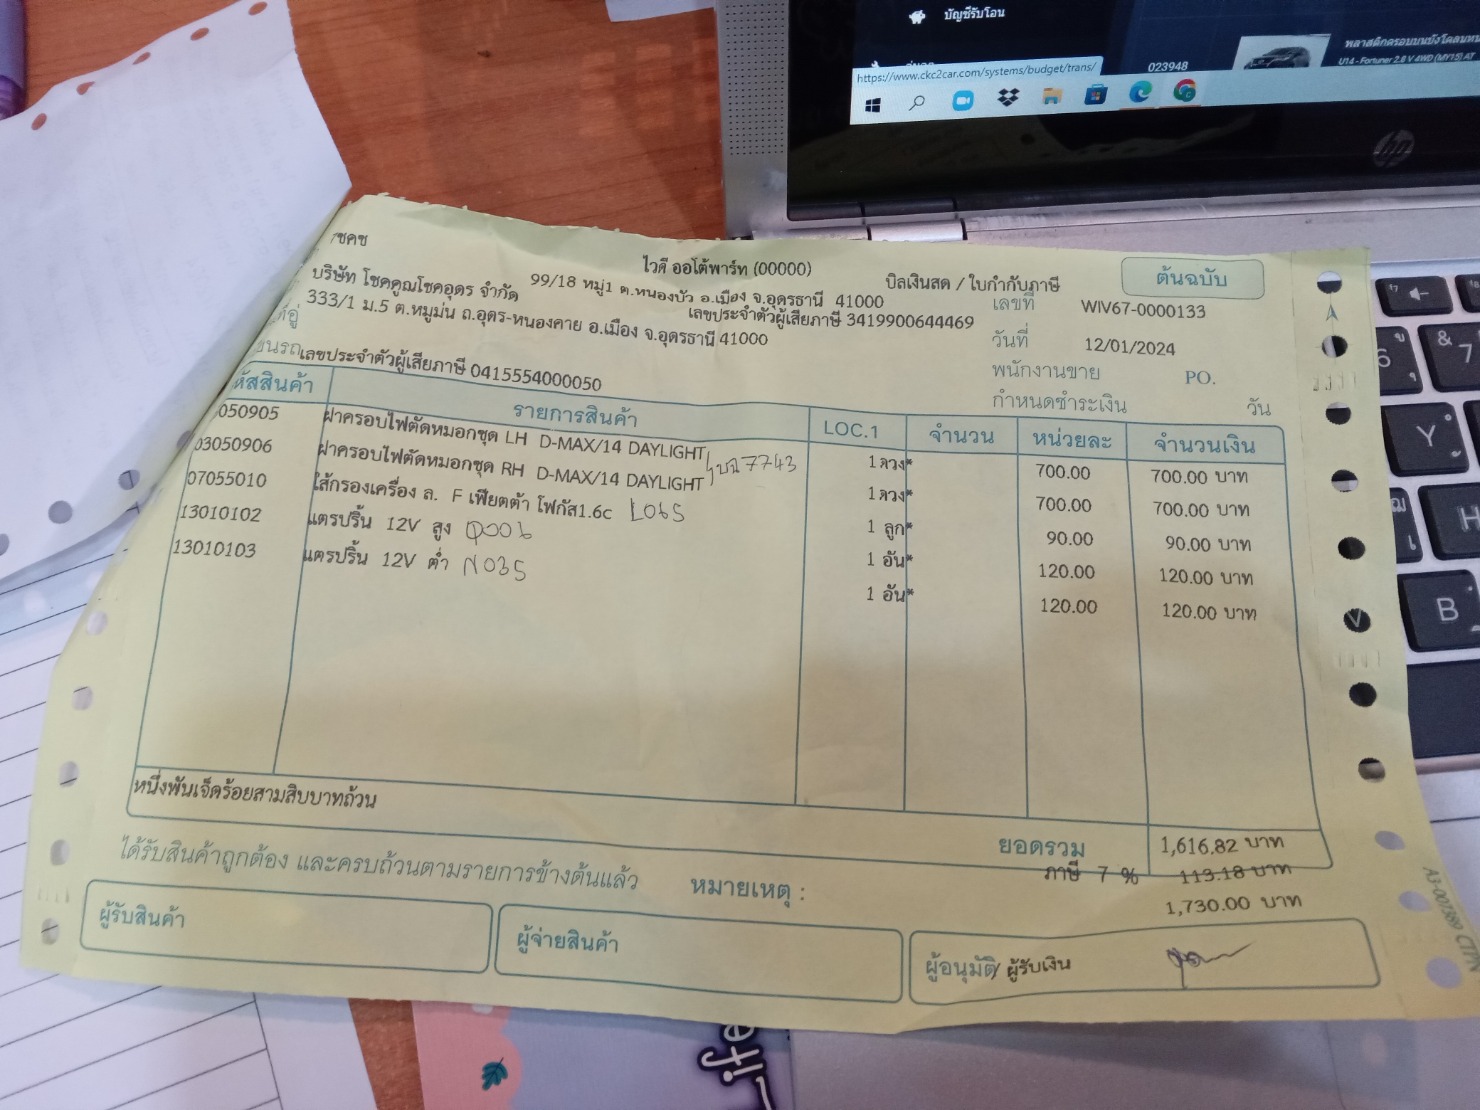 บัญชีรับโอน
พลาสติกครอบบนบังโคลนหน
023948
U14 - Fortuner 2.8 V 4WD (MY15) AT
https://www.ckc2car.com/systems/budget/trans/
hp
ชคช
ไวดี ออโต้พาร์ท (00000)
บิลเงินสด / ใบกำกับภาษี
ต้นฉบับ
บริษัท โชคคูณโชคอุดร จำกัด
99/18 หมู่1 ต.หนองบัว อ.เมือง จ.อุดรธานี 41000
เลขที่ WIV67-0000133
333/1 ม.5 ต.หมูม่น ถ.อุดร-หนองคาย อ.เมือง จ.อุดรธานี 41000
เลขประจำตัวผู้เสียภาษี 3419900644469
วันที่ 12/01/2024
เลขประจำตัวผู้เสียภาษี 0415554000050
พนักงานขาย PO.
กำหนดชำระเงิน วัน
หัสสินค้า รายการสินค้า LOC.1 จำนวน หน่วยละ จำนวนเงิน
050905 ฝาครอบไฟตัดหมอกชุด LH D-MAX/14 DAYLIGHT 1 ดวง* 700.00 700.00 บาท
03050906 ฝาครอบไฟตัดหมอกชุด RH D-MAX/14 DAYLIGHT 7743 1 ดวง* 700.00 700.00 บาท
07055010 ใส้กรองเครื่อง ล. F เฟียตต้า โฟกัส1.6c L065 1 ลูก* 90.00 90.00 บาท
13010102 แตรปริ้น 12V สูง 1 อัน* 120.00 120.00 บาท
13010103 แตรปริ้น 12V ต่ำ N035 1 อัน* 120.00 120.00 บาท
หนึ่งพันเจ็ดร้อยสามสิบบาทถ้วน
ยอดรวม 1,616.82 บาท
ได้รับสินค้าถูกต้อง และครบถ้วนตามรายการข้างต้นแล้ว หมายเหตุ :
ภาษี 7 % 113.18 บาท
1,730.00 บาท
ผู้รับสินค้า
ผู้จ่ายสินค้า
ผู้อนุมัติ/ ผู้รับเงิน